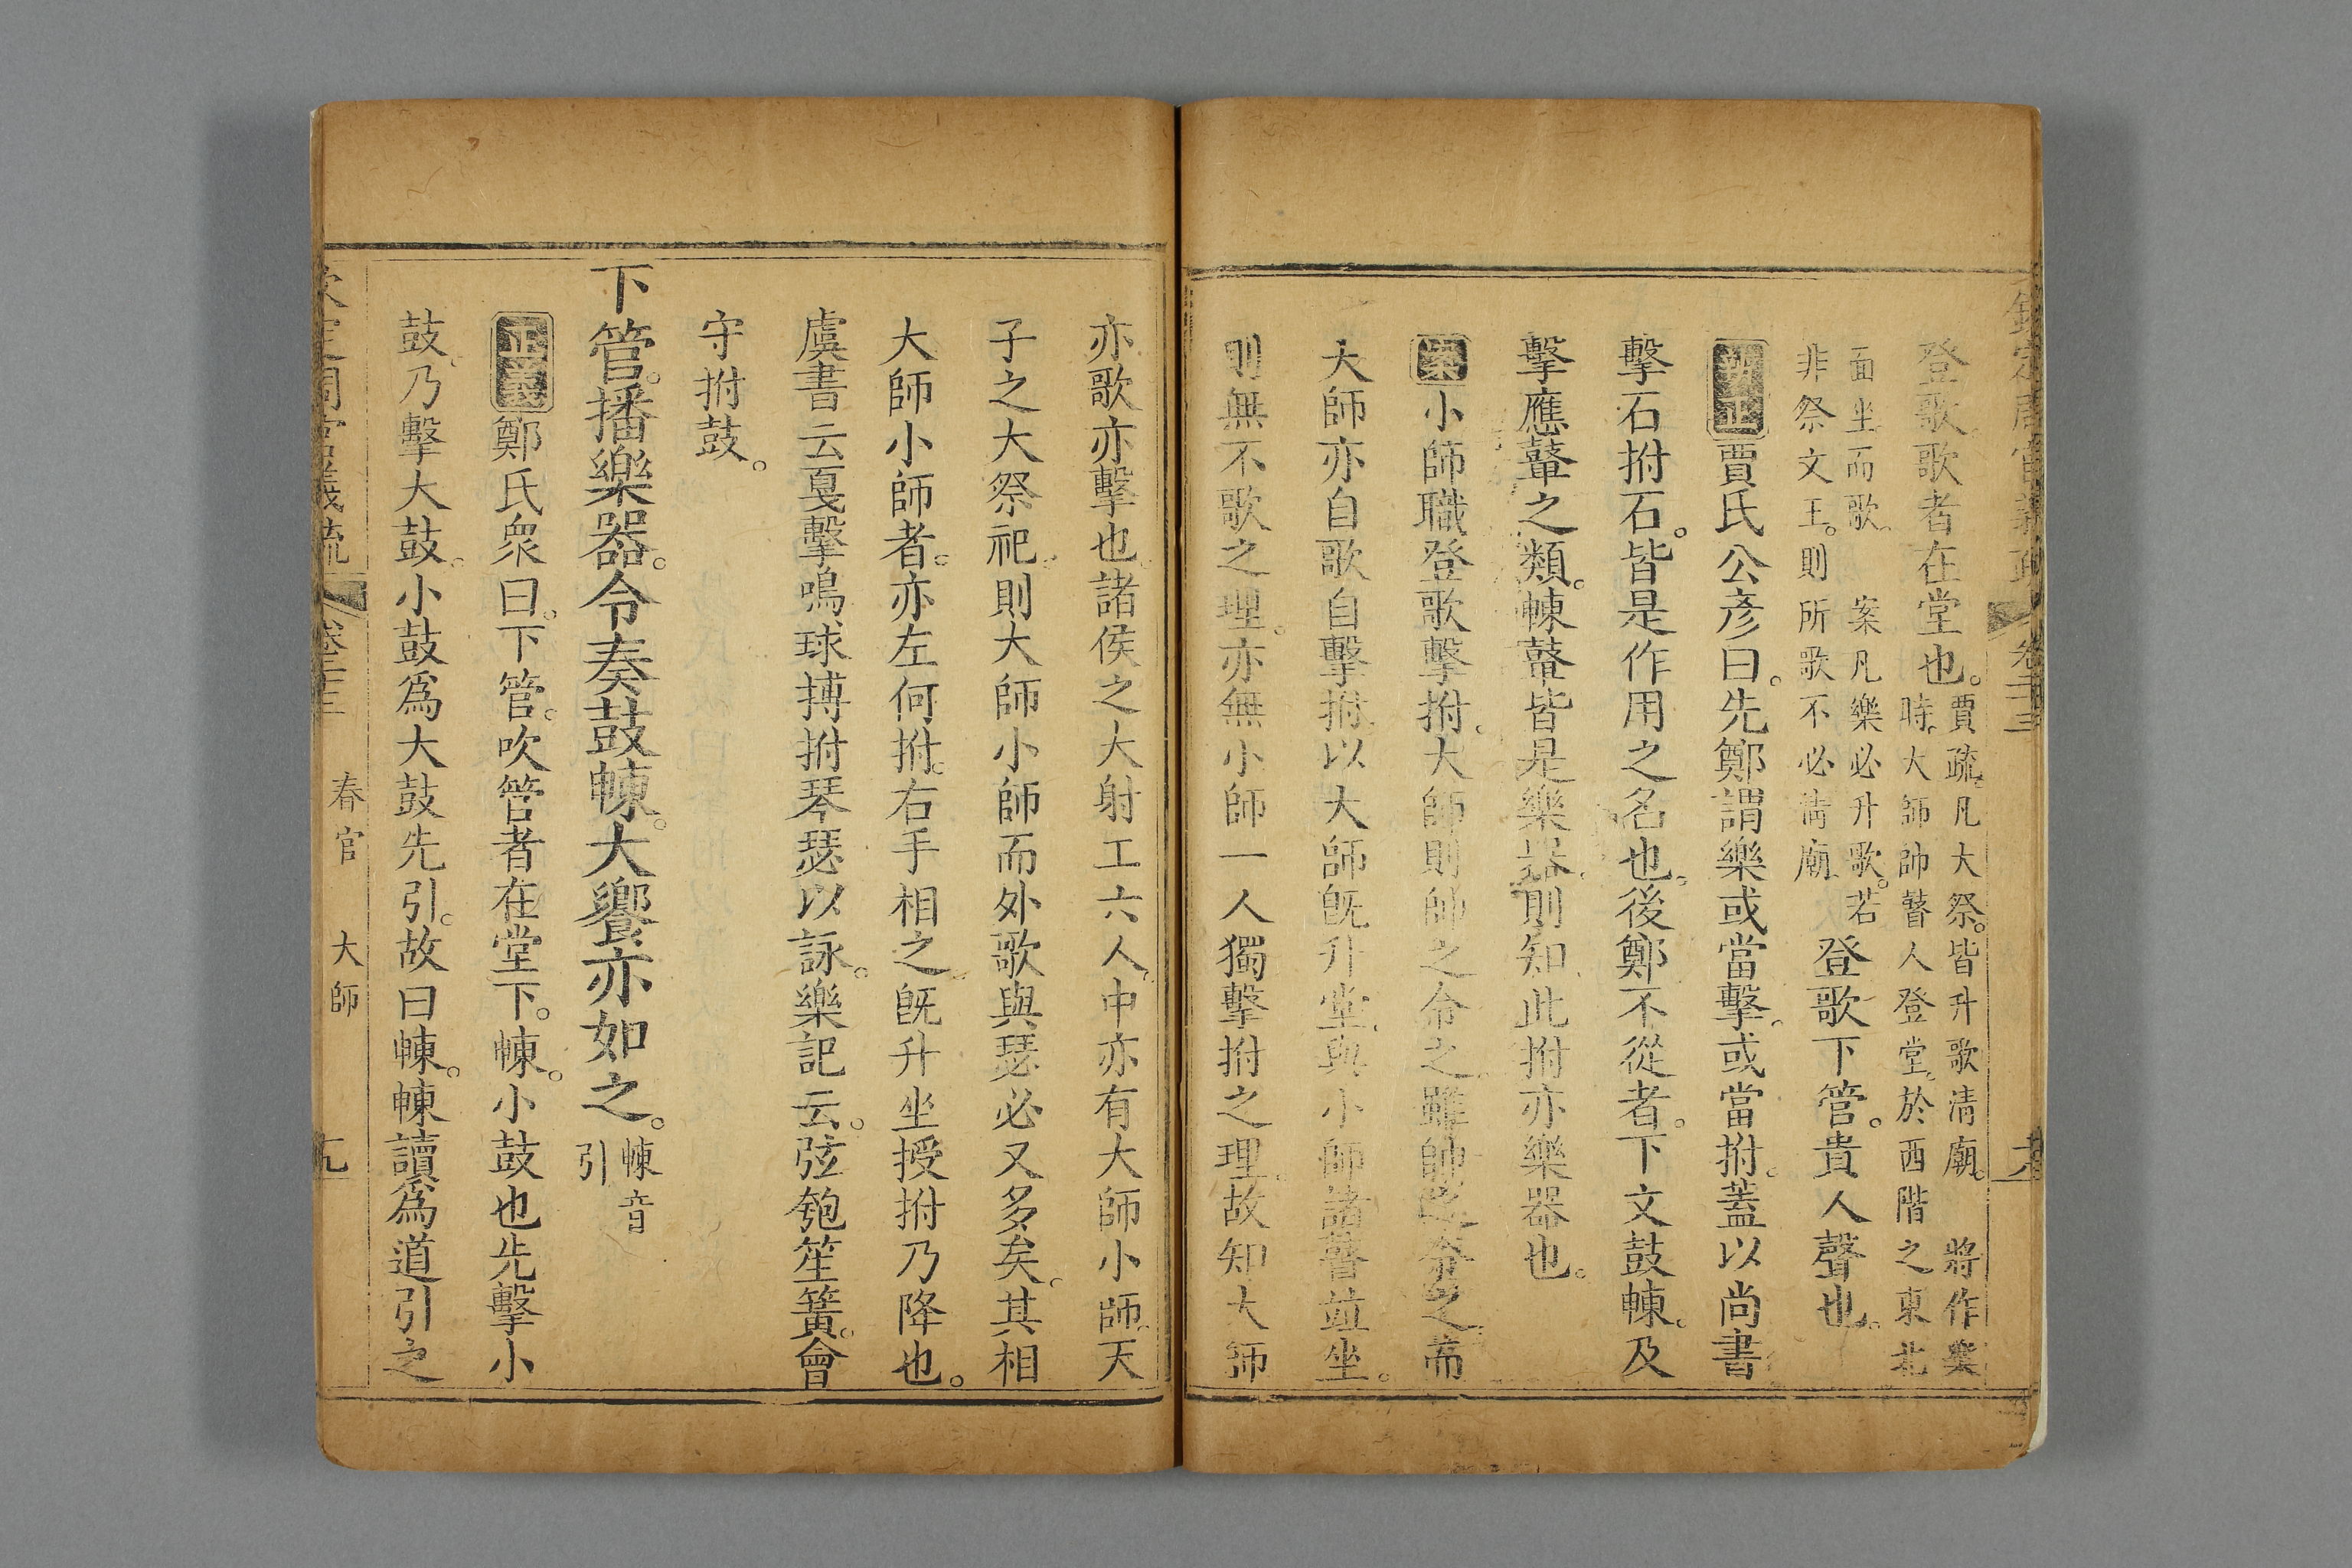 欽定周官義疏 卷二十三
登歌歌者在堂也。賈疏。凡大祭。皆升歌清廟。將作樂
時。大師帥瞽人登堂。於西階之東北
面坐而歌。 案凡樂必升歌。若
非祭文王。則所歌不必清廟。登歌下管。貴人聲也。
辨正賈氏公彥曰。先鄭謂樂或當擊。或當拊。蓋以尚書
擊石拊石。皆是作用之名也。後鄭不從者。下文鼓𣌾。及
擊應鼙之類。𣌾鼙皆是樂器。則知此拊亦樂器也。
案小師職登歌擊拊。大師則帥之命之雖帥之命之而
大師亦自歌自擊拊。以大師既升堂。與小師諸瞽並坐。
則無不歌之理。亦無小師一人獨擊拊之理。故知大師
亦歌亦擊也。諸侯之大射工六人。中亦有大師小師。天
子之大祭祀。則大師小師而外歌與瑟必又多矣。其相
大師小師者。亦左何拊。右手相之。既升坐授拊乃降也。
虞書云戛擊鳴球搏拊琴瑟以詠。樂記云。弦匏笙簧。會
守拊鼓。
下管。播樂器。令奏鼓𣌾。大饗亦如之。𣌾音
引
正義鄭氏衆曰。下管。吹管者在堂下。𣌾。小鼓也先擊小
鼓。乃擊大鼓。小鼓爲大鼓先引。故曰𣌾。𣌾讀爲道引之
欽定周官義疏 卷二十三 春官 大師